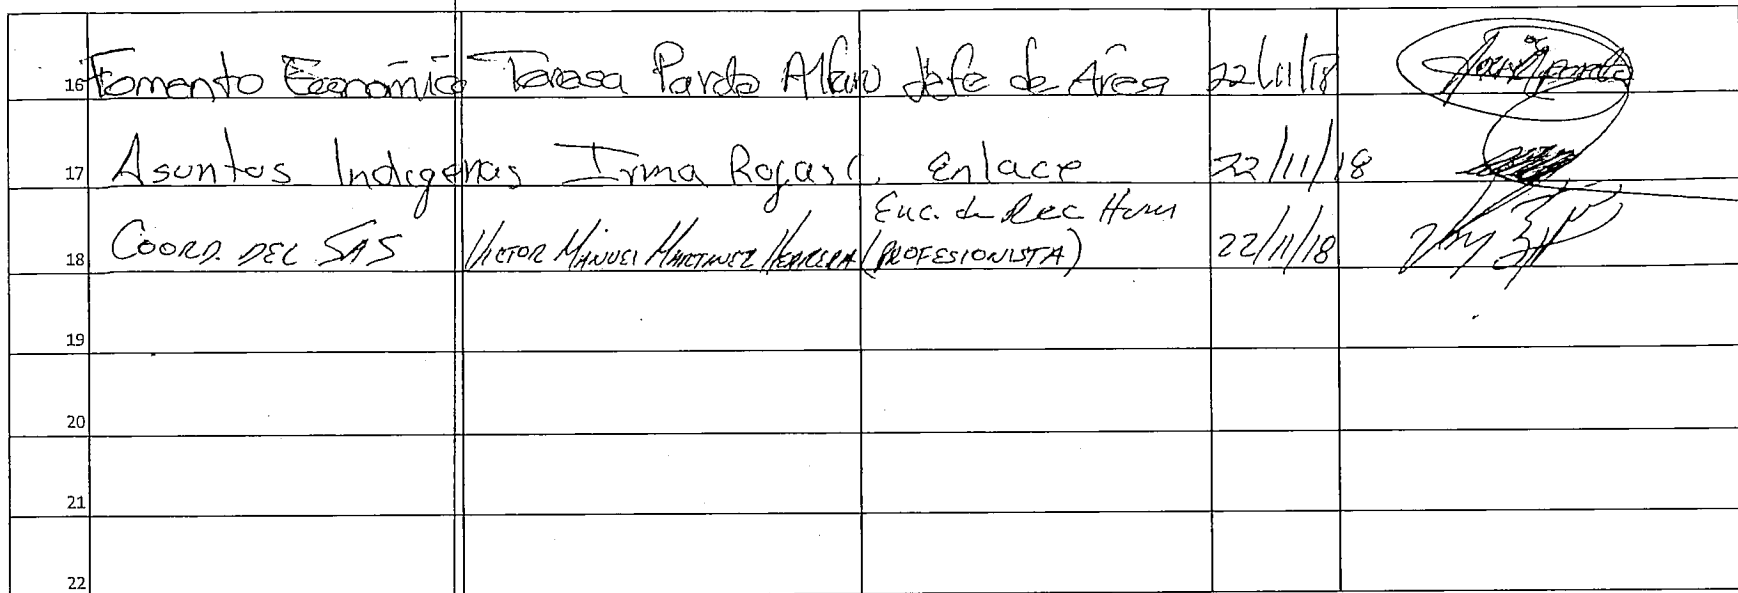 16 Fomento Económico Teresa Pardo Alfaro Jefe de Área 22/11/18
17 Asuntos Indigenas Irma Rojas C. Enlace 22/11/18
Enc. de Rec Hum
18 COORD. DEL SAS VICTOR MANUEL MARTINEZ HERRERA (PROFESIONISTA) 22/11/18
19
20
21
22